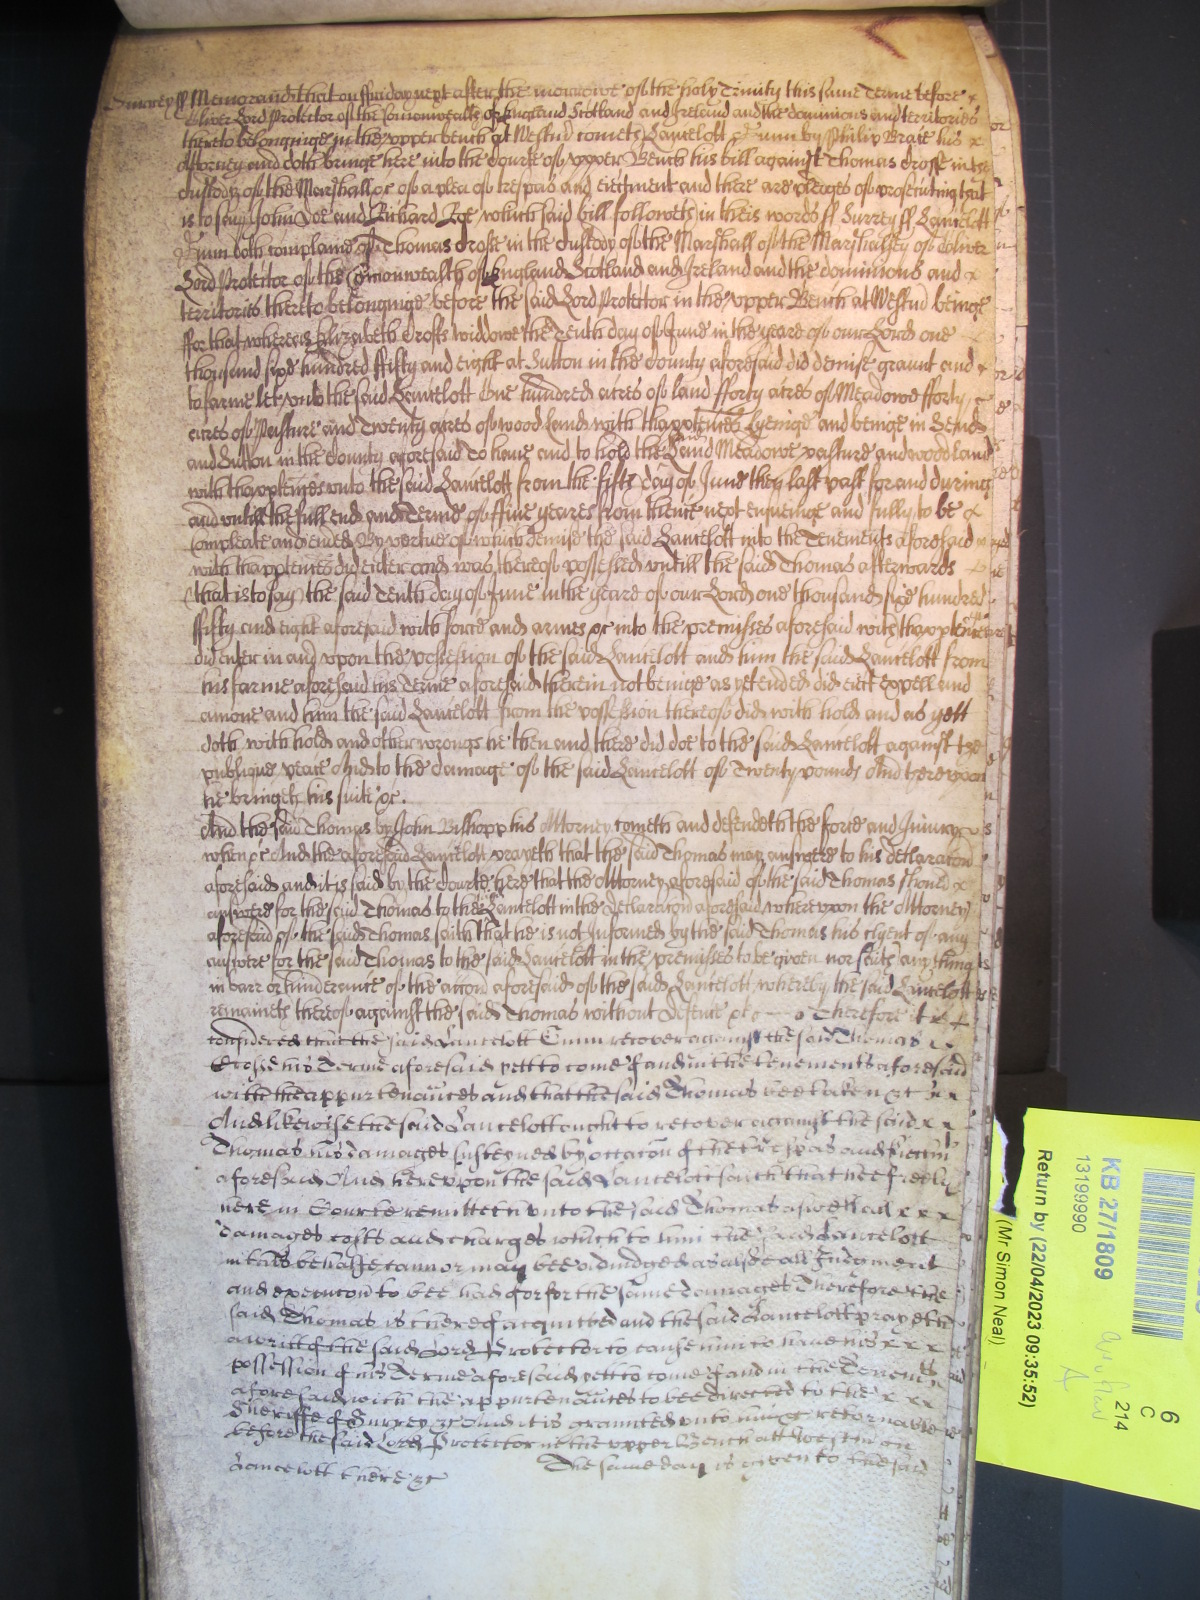 Surrey ss Memorand that on ffriday next after the morrowe of the holy Trinity this same Terme before x
Oliver Lord Protector of the Comonwealth of England Scotland and Ireland and the dominions and territories
thereto belonginge in the upper bench at Westm cometh Lancelott by Philip his x
Attorney and doth bringe here into the Courte of upper Bench his bill against Thomas Crosse in the
Custody of the Marshall &c of a plea of trespas and eiectment and there are pledges of prosecuting that
is to say John Doe and Richard Roe which said bill followeth in theis words ss Surrey ss Lancelott
doth complaine of Thomas Crosse in the Custody of the Marshall of the Marshallsey of Oliver
Lord Protector of the Comonwealth of England Scotland and Ireland and the dominions and x
territories thereto belonginge before the said Lord Protector in the upper Bench at Westm beinge
ffor that whereas Elizabeth Crosse widdowe the Tenth day of June in the yeare of our Lord one
thousand six hundred ffifty and eight at Sutton in the County aforesaid did demise graunt and x
to farme let unto the said Lancelott One hundred acres of land fforty acres of Meadowe fforty
acres of Pasture and Twenty acres of wood land with thapptences lyeinge and beinge in Send
and Sutton in the County aforesaid To have and to hold the land Meadowe pasture and woodland
with thapptences unto the said Lancelott from the fifth day of June then last past for and during
and untill the full end and Terme of ffive yeares from thence next ensueinge and fully to be x
Compleate and ended By vertue of which demise the said Lancelott into the Tenements aforesaid
with thapptences did enter and was thereof possessed untill the said Thomas afterwards
(that is to say) the said Tenth day of June in the yeare of our Lord one thousand six hundred
ffifty and eight aforesaid with force and armes &c into the premisses aforesaid with thapptences
did enter in and upon the possession of the said Lancelott and him the said Lancelott from
his farme aforesaid his Terme aforesaid therein not beinge as yet ended did eiect expell and
amove and him the said Lancelott from the possession thereof did with hold and as yett
doth with hold and other wrongs he then and there did doe to the said Lancelott against the
publique peace And to the damage of the said Lancelott of Twenty pounds And thereupon
he bringeth his suite &c.
And the said Thomas by John Bishopp his Attorney cometh and defendeth the force and Iniury
when &c And the aforesaid Lancelott prayeth that the said Thomas may answere to his declaracon
aforesaid and it is said by the Courte here that the Attorney aforesaid of the said Thomas should x
answere for the said Thomas to the Lancelott in the declaracon aforesaid whereupon the Attorney
aforesaid of the said Thomas saith that he is not Informed by the said Thomas his Clyent of any
answere for the said Thomas to the said Lancelott in the premisses to be given nor saith any thing
in barr or hinderance of the accon aforesaid of the said Lancelott whereby the said Lancelott
remaineth thereof against the said Thomas without defence &c Therefore it is x
considered that the said Lancelott recover against the said Thomas
Crosse his Terme aforesaid yett to come of and in the tenements aforesaid
with the appurtenances and that the said Thomas bee taken &c x x
And likewise the said Lancelott ought to recover against the said x x
Thomas his damages susteyned by occacon of the trespas and Eiectm
aforesaid And hereupon the said Lancelott saith that hee freely
here in Courte remitteth unto the said Thomas aswell all x x x
damages costs and charges which to him the said Lancelott
in this behalfe cannor may bee adiudged as alsoe all Iudgment
and execucon to bee had for the same damages Therefore the
said Thomas is thereof acquitted and the said Lancelott prayeth
a writt of the said Lord Protector to cause him to have his x x x
possession of his Terme aforesaid yett to come of and in the Tenemts
aforesaid with the appurtenances to bee directed to the x x x
Sheriffe of Surrey &c And it is graunted unto him &c retornable
before the said Lord Protector in the upper Bench att Westm on
The same day is given to the said
Lancelott there &c
KB 27/1809
13199990
Return by (22/04/2023 09:35:52)
(Mr Simon Neal)
6
C
214
A